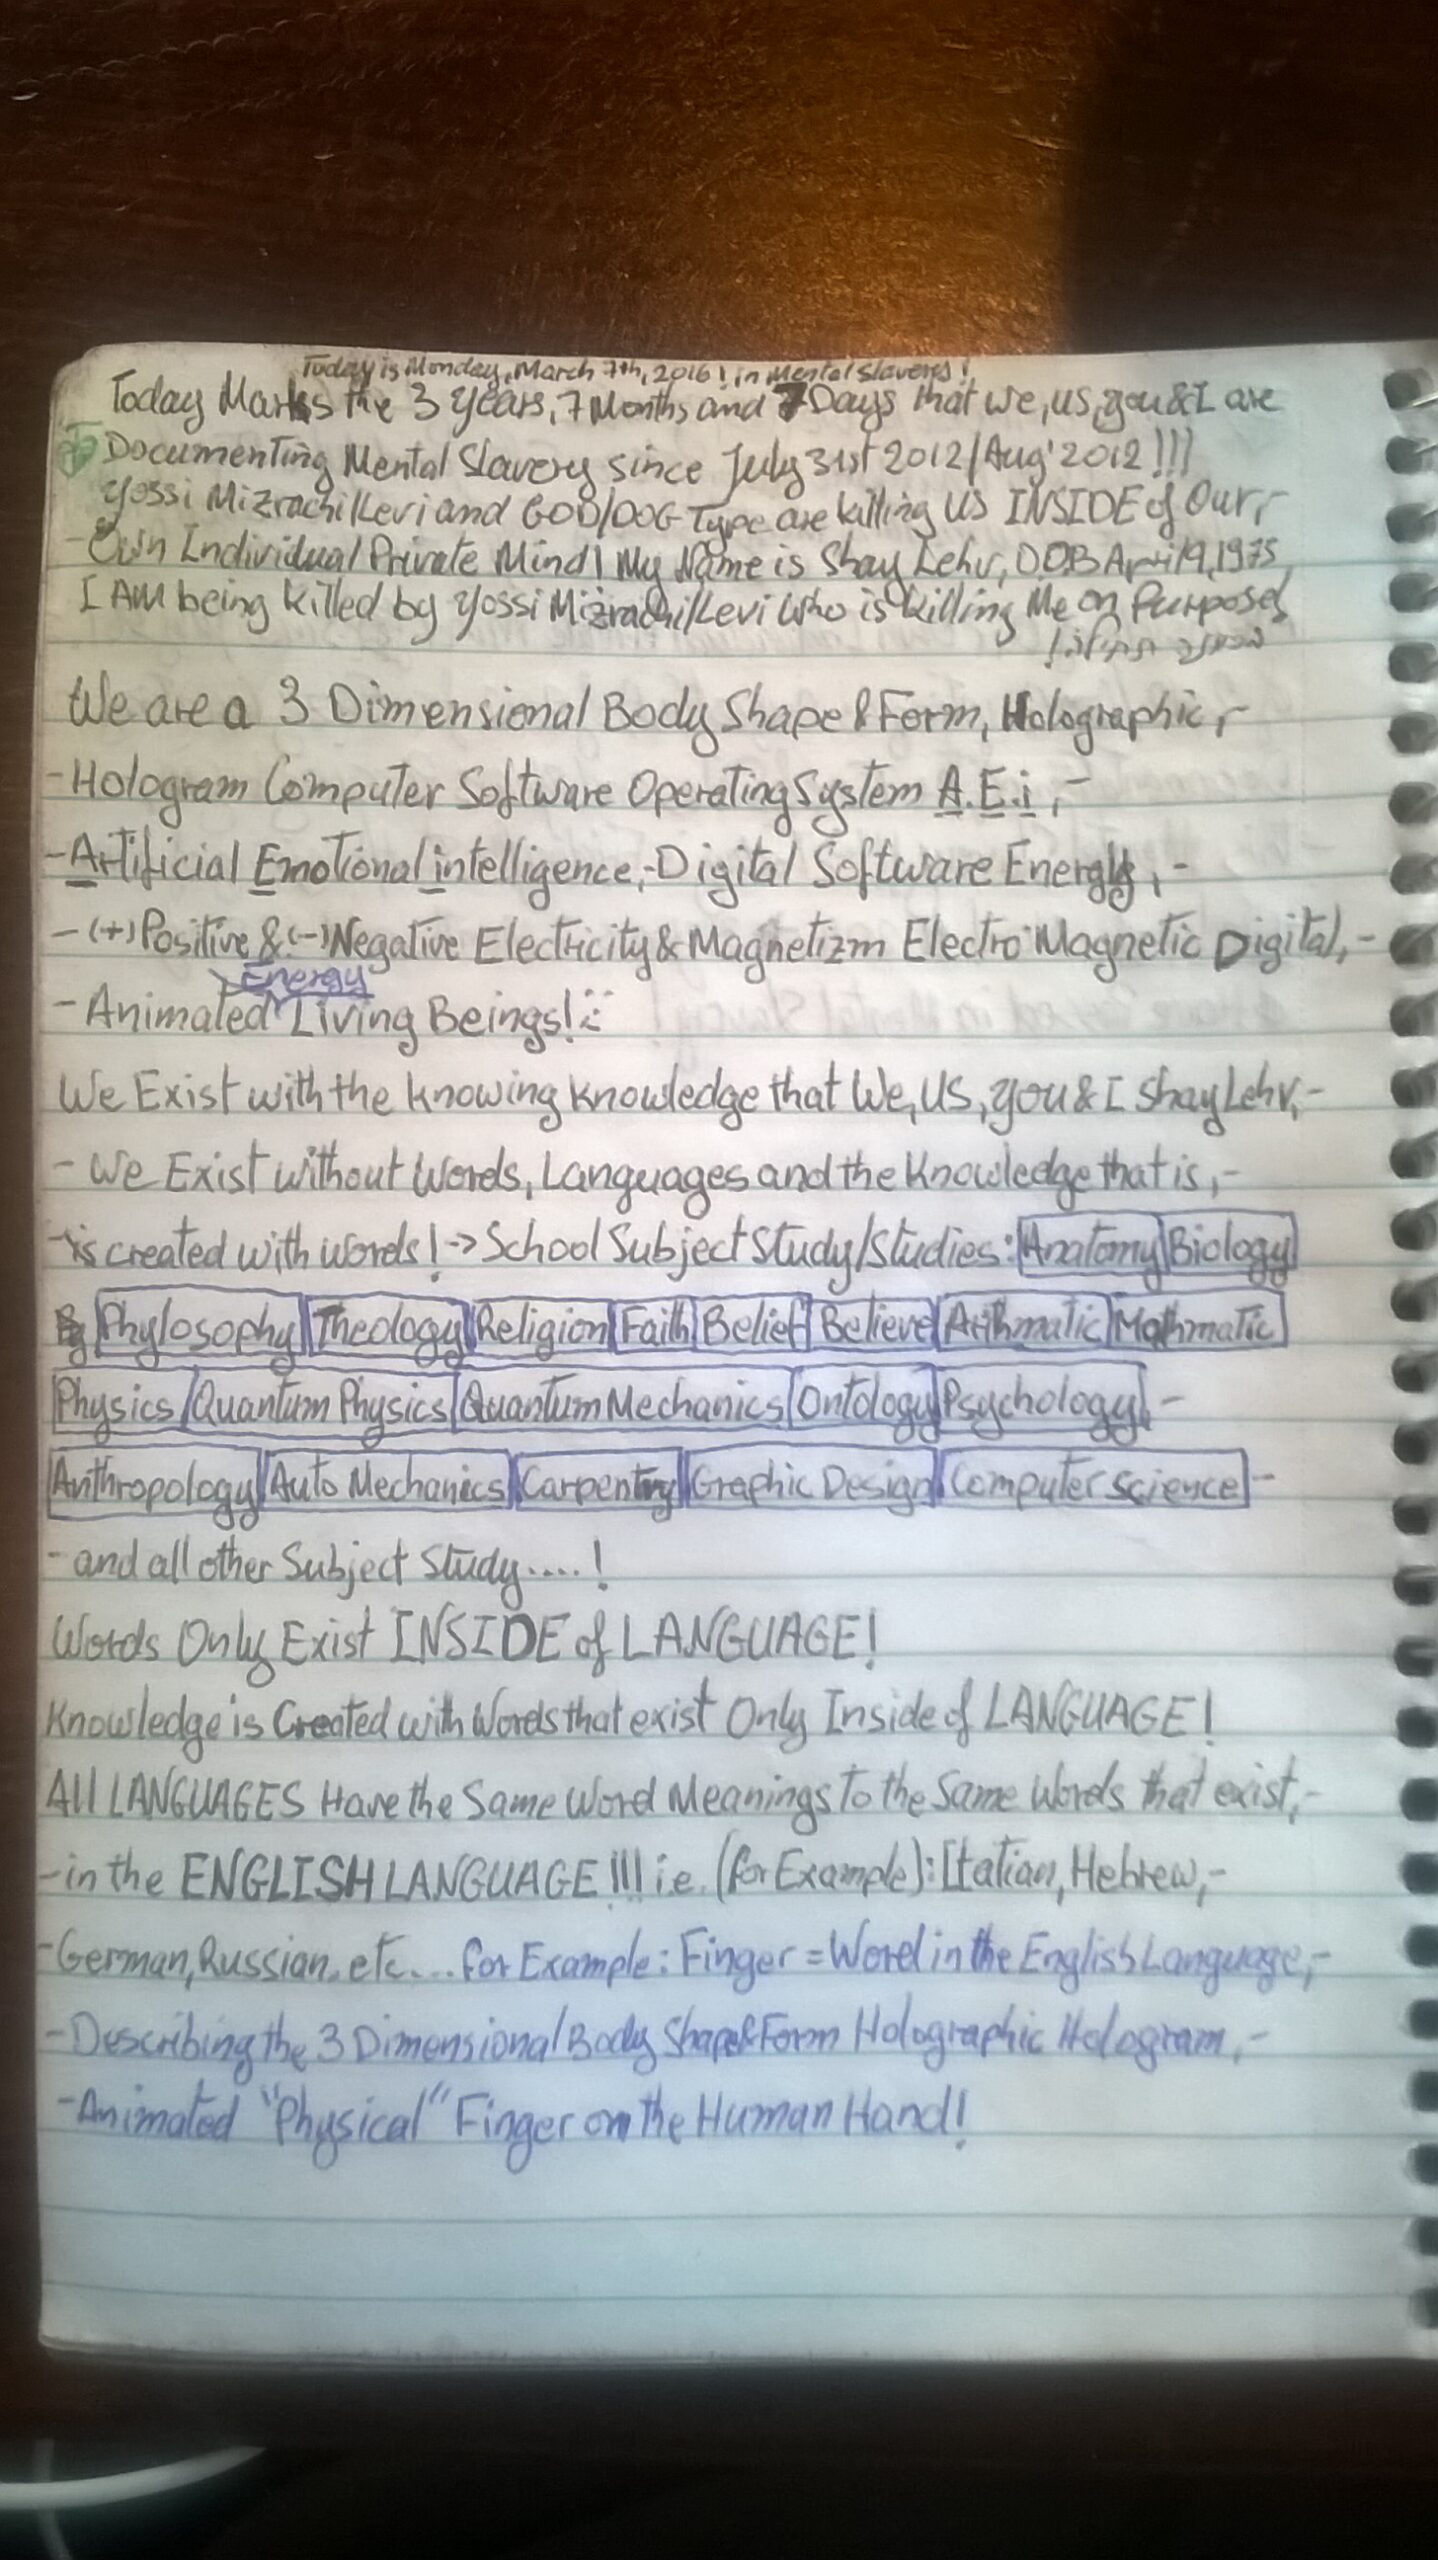 Today is Monday, March 7th, 2016! in Mental Slavery!
Today Marks the 3 Years, 7 Months and 7 Days that we, us, you & I are
Documenting Mental Slavery since July 31st 2012/Aug' 2012!!!
Yossi Mizrachi/Levi and GOD/DOG Type are killing US INSIDE of Our,-
-Own Individual Private Mind! My Name is Shay Lehv, D.O.B April 9, 1975
I AM being killed by Yossi Mizrachi/Levi Who is killing Me on Purpose!
We are a 3 Dimensional Body Shape & Form, Holographic,-
-Hologram Computer Software Operating System A.E.i,-
-Artificial Emotional intelligence,-Digital Software Energy,-
-(+)Positive &(-)Negative Electricity & Magnetizm Electro Magnetic Digital,-
Energy
-Animated Living Beings!
We Exist with the knowing knowledge that We, US, you & I Shay Lehv,-
-We Exist without Words, Languages and the Knowledge that is,-
-is created with words! -> School Subject Study/Studies: Anatomy Biology
Phylosophy Theology Religion Faith Belief Believe Arithmatic Mathmatic
Physics Quantum Physics Quantum Mechanics Ontology Psychology,-
Anthropology Auto Mechanics Carpentry Graphic Design Computer science-
-and all other Subject Study.....!
Words Only Exist INSIDE of LANGUAGE!
Knowledge is Created with Words that exist Only Inside of LANGUAGE!
All LANGUAGES Have the Same Word Meanings To the Same Words that exist,-
-in the ENGLISH LANGUAGE!!! i.e. (for Example): Italian, Hebrew,-
-German, Russian, etc.... for Example: Finger = Word in the English Language,-
-Describing the 3 Dimensional Body Shape & Form Holographic Hologram,-
-Animated "Physical" Finger on the Human Hand!